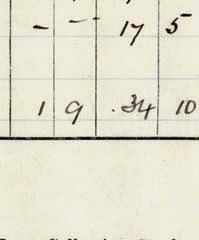 - - 17 5
1 9 .34 10